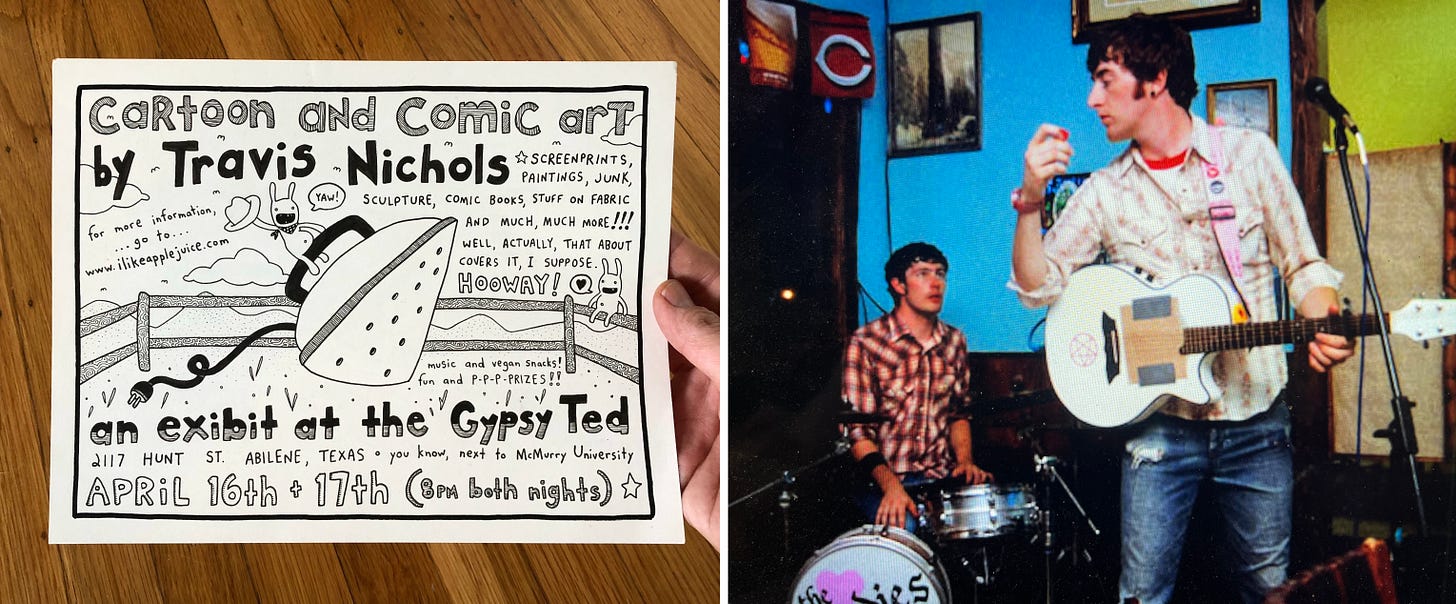 CaRtoon and Comic arT
by Travis Nichols ☆ SCREENPRINTS,
PAINTINGS, JUNK,
SCULPTURE, COMIC BOOKS, STUFF ON FABRIC
AND MUCH, MUCH MORE!!!
WELL, ACTUALLY, THAT ABOUT
COVERS IT, I SUPPOSE.
HOOWAY!
YAW!
for more information,
...go to...
www.ilikeapplejuice.com
music and vegan snacks!
fun and P-P-P-PRIZES!!
an exibit at the Gypsy Ted
2117 HUNT ST. ABILENE, TEXAS • you know, next to McMurry University
APRiL 16th + 17th (8PM both nights) ☆
C
the